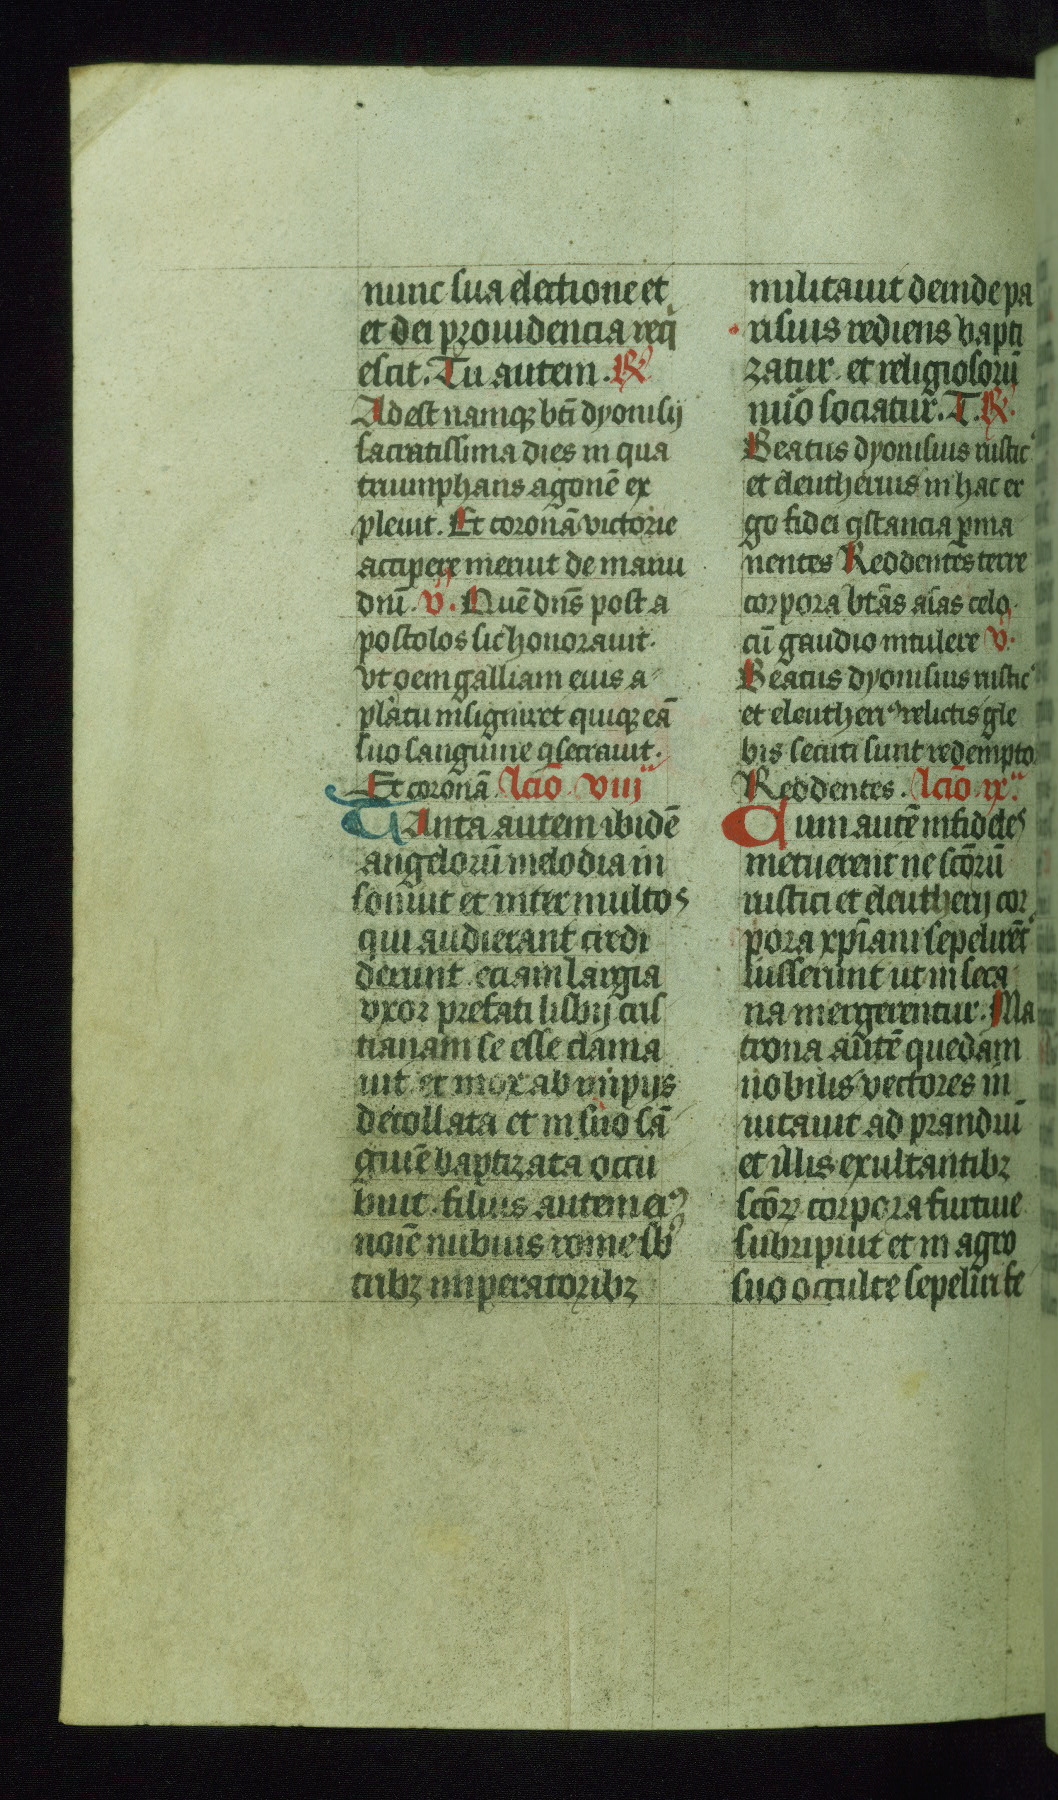 nunc sua electione et
et dei prouidencia req̄i
escit. Tu autem. ℟
Adest namqꝫ bt̄i dyonisij
sacratissima dies in qua
triumphans agonē ex
pleuit. Et coronā victorie
accipere meruit de manu
dnī. v̄. Quē dn̄s post a
postolos sic honorauit.
vt oēm galliam eius a
plātu insigniret quiqꝫ eā
suo sanguine ꝯsecrauit.
Et coronā. lcīo viij
Tanta autem ibidē
angeloꝝ̄ melodia in
sonuit et inter multos
qui audierant credi
derunt. eciam largia
vxor prefati lisbij cris
tianam se esse clama
uit et mox ab impijs
decollata et in suo sā
guīe baptizata occu
buit. filius autem eiꝰ
noīe uibius rome sb̄
tribꝫ imperatoribꝫ
militauit deinde pa
risius rediens bapti
zatur et religiosorū
nūo sociatur. T. ℟.
Beatus dyonisius rusticꝰ
et eleutherius in hac er
go fidei ꝯstancia ꝑma
nentes Reddentes terre
corpora bt̄as aīas celo
cū gaudio intulere v̄.
Beatus dyonisius rusticꝰ
et eleutheriꝰ relictis gle
bis secuti sunt redempto
Reddentes. lcīo ix.
Cum autē infideles
metuerent ne sc̄orū
rustici et eleutherij cor
pora xp̄iani sepelirēt
iusserunt ut in seca
na mergerentur. Ma
trona autē quedam
nobilis vectores in
uitauit ad prandiū
et illis exultantibꝫ
sc̄oꝝ corpora furtiue
subripiuit et in agro
suo occulte sepeliri fe